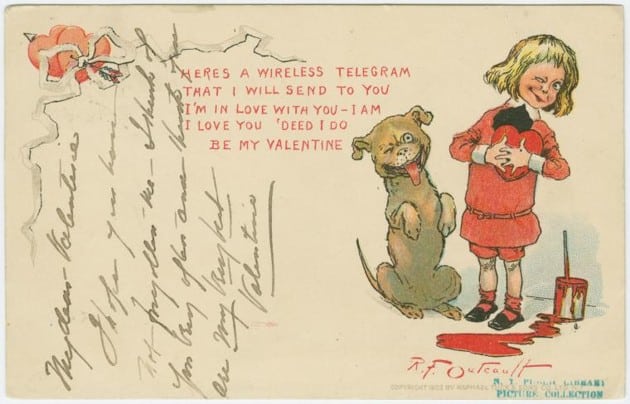 HERES A WIRELESS TELEGRAM
THAT I WILL SEND TO YOU
I'M IN LOVE WITH YOU – I AM
I LOVE YOU 'DEED I DO
BE MY VALENTINE
My dear Valentine
I hope you have
not me – I think of
you very often and you
are my
Valentine
R.F. Outcault
COPYRIGHT BY RAPHAEL TUCK & SONS CO
N. Y. PUBLIC LIBRARY
PICTURE COLLECTION